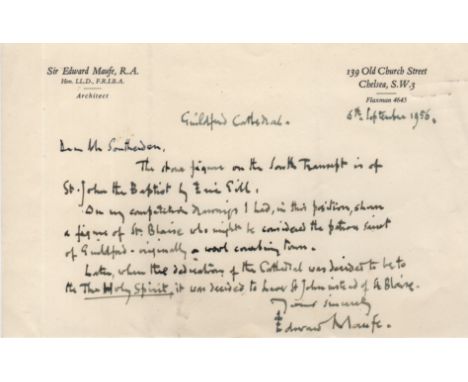 Sir Edward Maufe, R.A.
Hon. LL.D., F.R.I.B.A.
Architect
139 Old Church Street
Chelsea, S.W.3
Flaxman 4645
Guildford Cathedral.
6th September 1956.
Dear Mr Southerden,
The stone figure on the South Transept is of
St. John the Baptist by Eric Gill.
On my competition drawings I had, in this position, shown
a figure of St. Blaise who might be considered the patron saint
of Guildford - originally a wool combing town.
Later, when the dedication of the Cathedral was decided to be to
the The Holy Spirit, it was decided to have St John instead of St Blaise.
Yours sincerely
Edward Maufe.